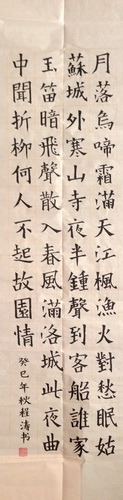 月落烏啼霜滿天江楓漁火對愁眠姑
蘇城外寒山寺夜半鍾聲到客船誰家
玉笛暗飛聲散入春風滿洛城此夜曲
中聞折柳何人不起故園情
癸巳年秋程涛书